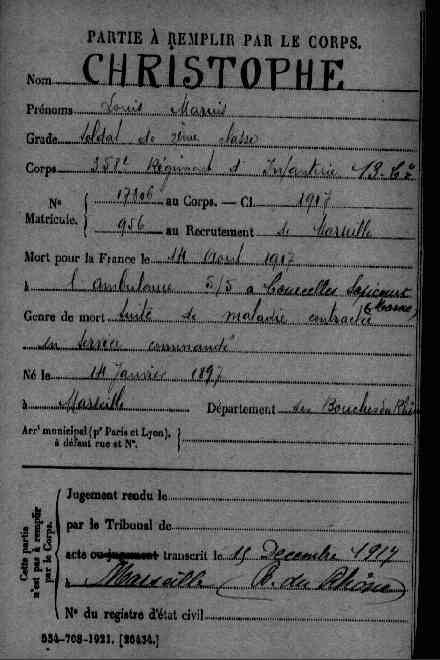 PARTIE À REMPLIR PAR LE CORPS.
Nom CHRISTOPHE
Prénoms Louis Marius
Grade Soldat de 2ème classe
Corps 358e Régiment d'Infanterie 13e Cie
Nº Matricule. 17106 au Corps. — Cl. 1917
956 au Recrutement de Marseille
Mort pour la France le 14 Aout 1917
à l'ambulance 5/5 à Courcelles Sapicourt (Marne)
Genre de mort Suite de maladie contractée
en service commandé
Né le 14 Janvier 1897
à Marseille Département des Bouches du Rhône
Arrt municipal (pr Paris et Lyon), à défaut rue et Nº.
Cette partie n'est pas à remplir par le Corps.
Jugement rendu le
par le Tribunal de
acte ou jugement transcrit le 15 Decembre 1917
à Marseille (B. du Rhône)
Nº du registre d'état civil
534-708-1921. [26434.]